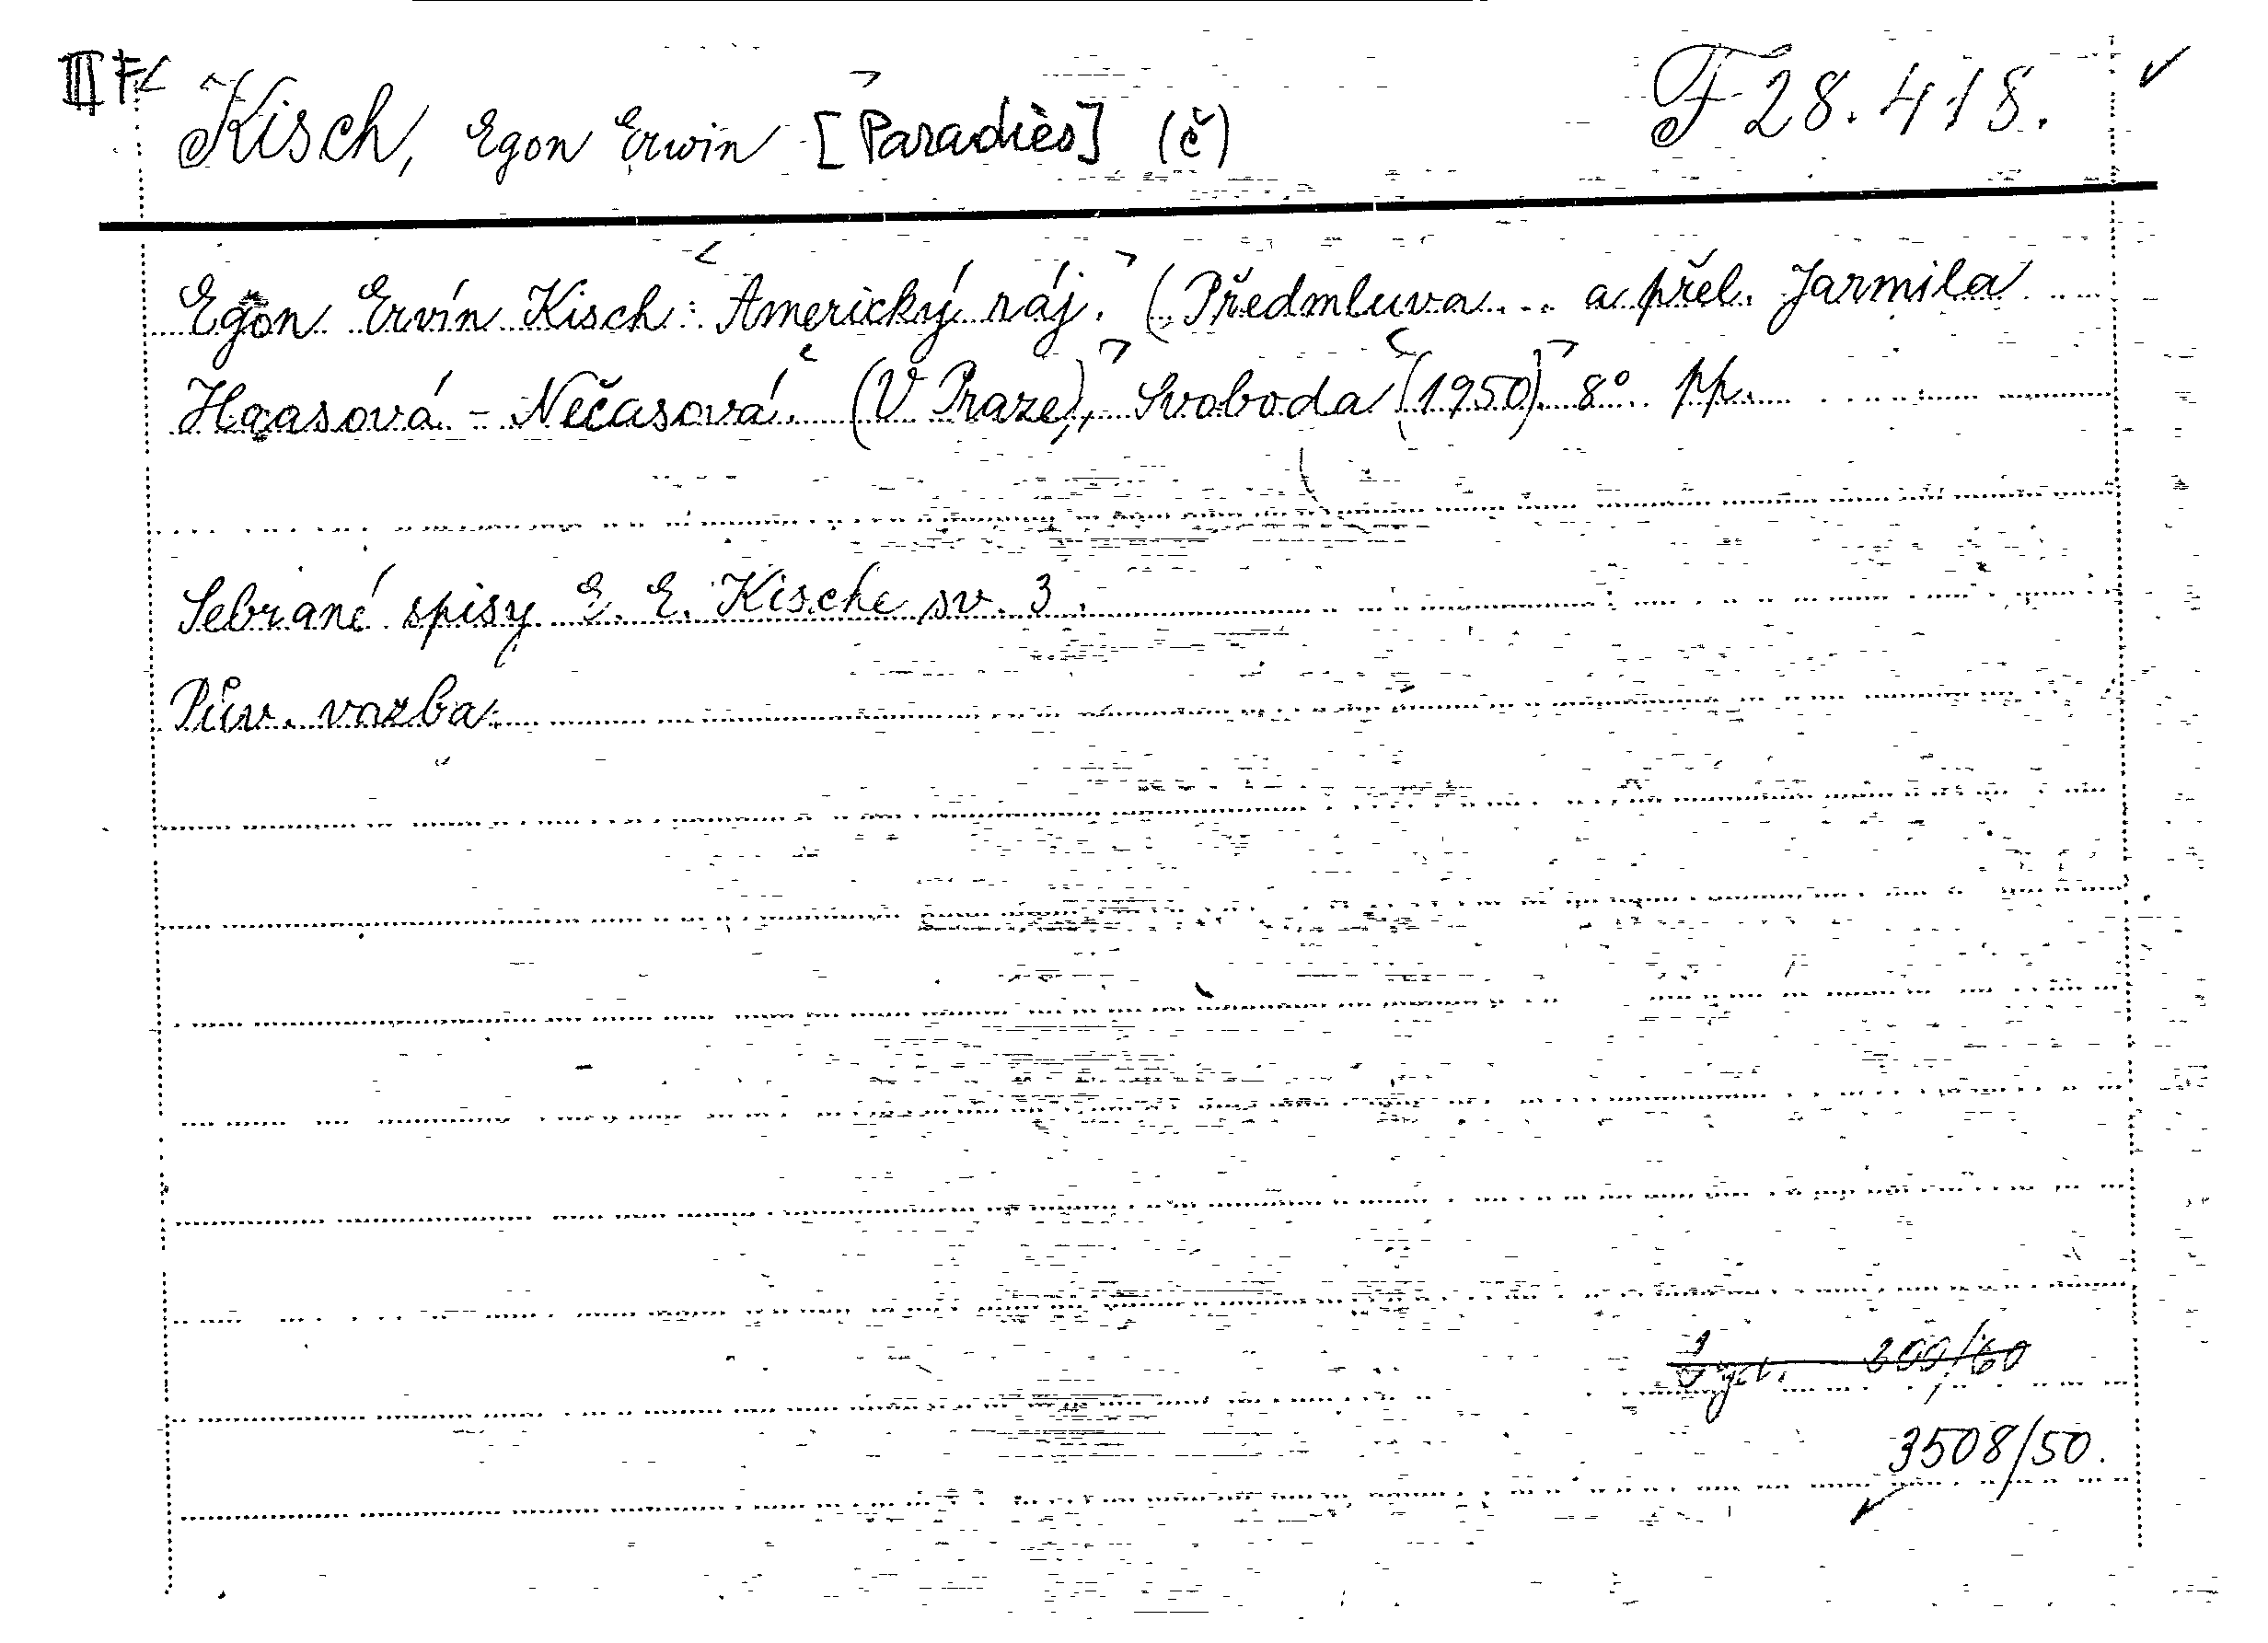 III F
Kisch, Egon Erwin [Paradies] (č) F 28.418.
Egon Ervín Kisch: Americký ráj. (Předmluva... a přel. Jarmila
Haasová - Nečasová. (V Praze), Svoboda (1950). 8° pp.
Sebrané spisy E. E. Kische sv. 3.
Pův. vazba.
3508/50.